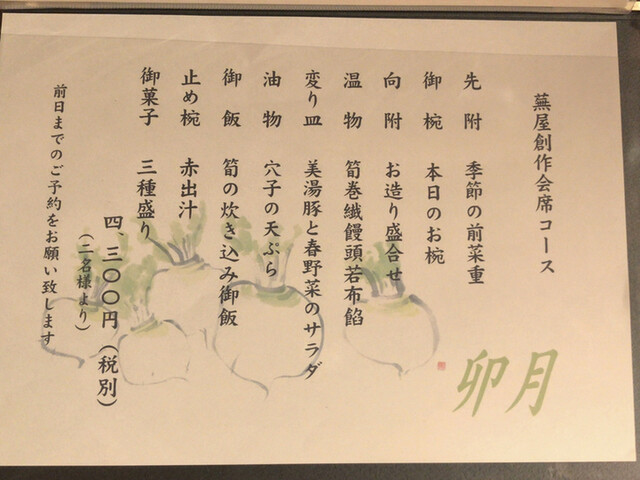 蕪屋創作会席コース
卯月
先附 季節の前菜重
御椀 本日のお椀
向附 お造り盛合せ
温物 筍巻繊饅頭若布餡
変り皿 美湯豚と春野菜のサラダ
油物 穴子の天ぷら
御飯 筍の炊き込み御飯
止め椀 赤出汁
御菓子 三種盛り
四、三〇〇円（税別）
（二名様より）
前日までのご予約をお願い致します